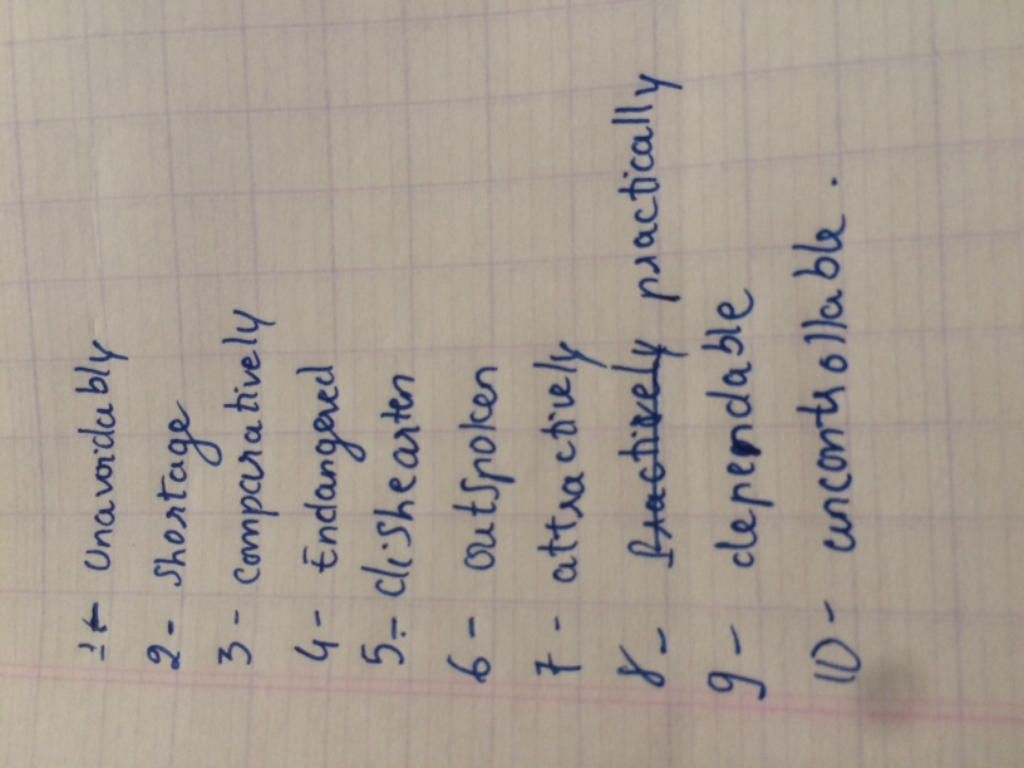 1- Unavoidably
2- Shortage
3- Comparatively
4- Endangered
5- dishearten
6- outspoken
7- attractively
8- practically
9- dependable
10- uncontrollable.